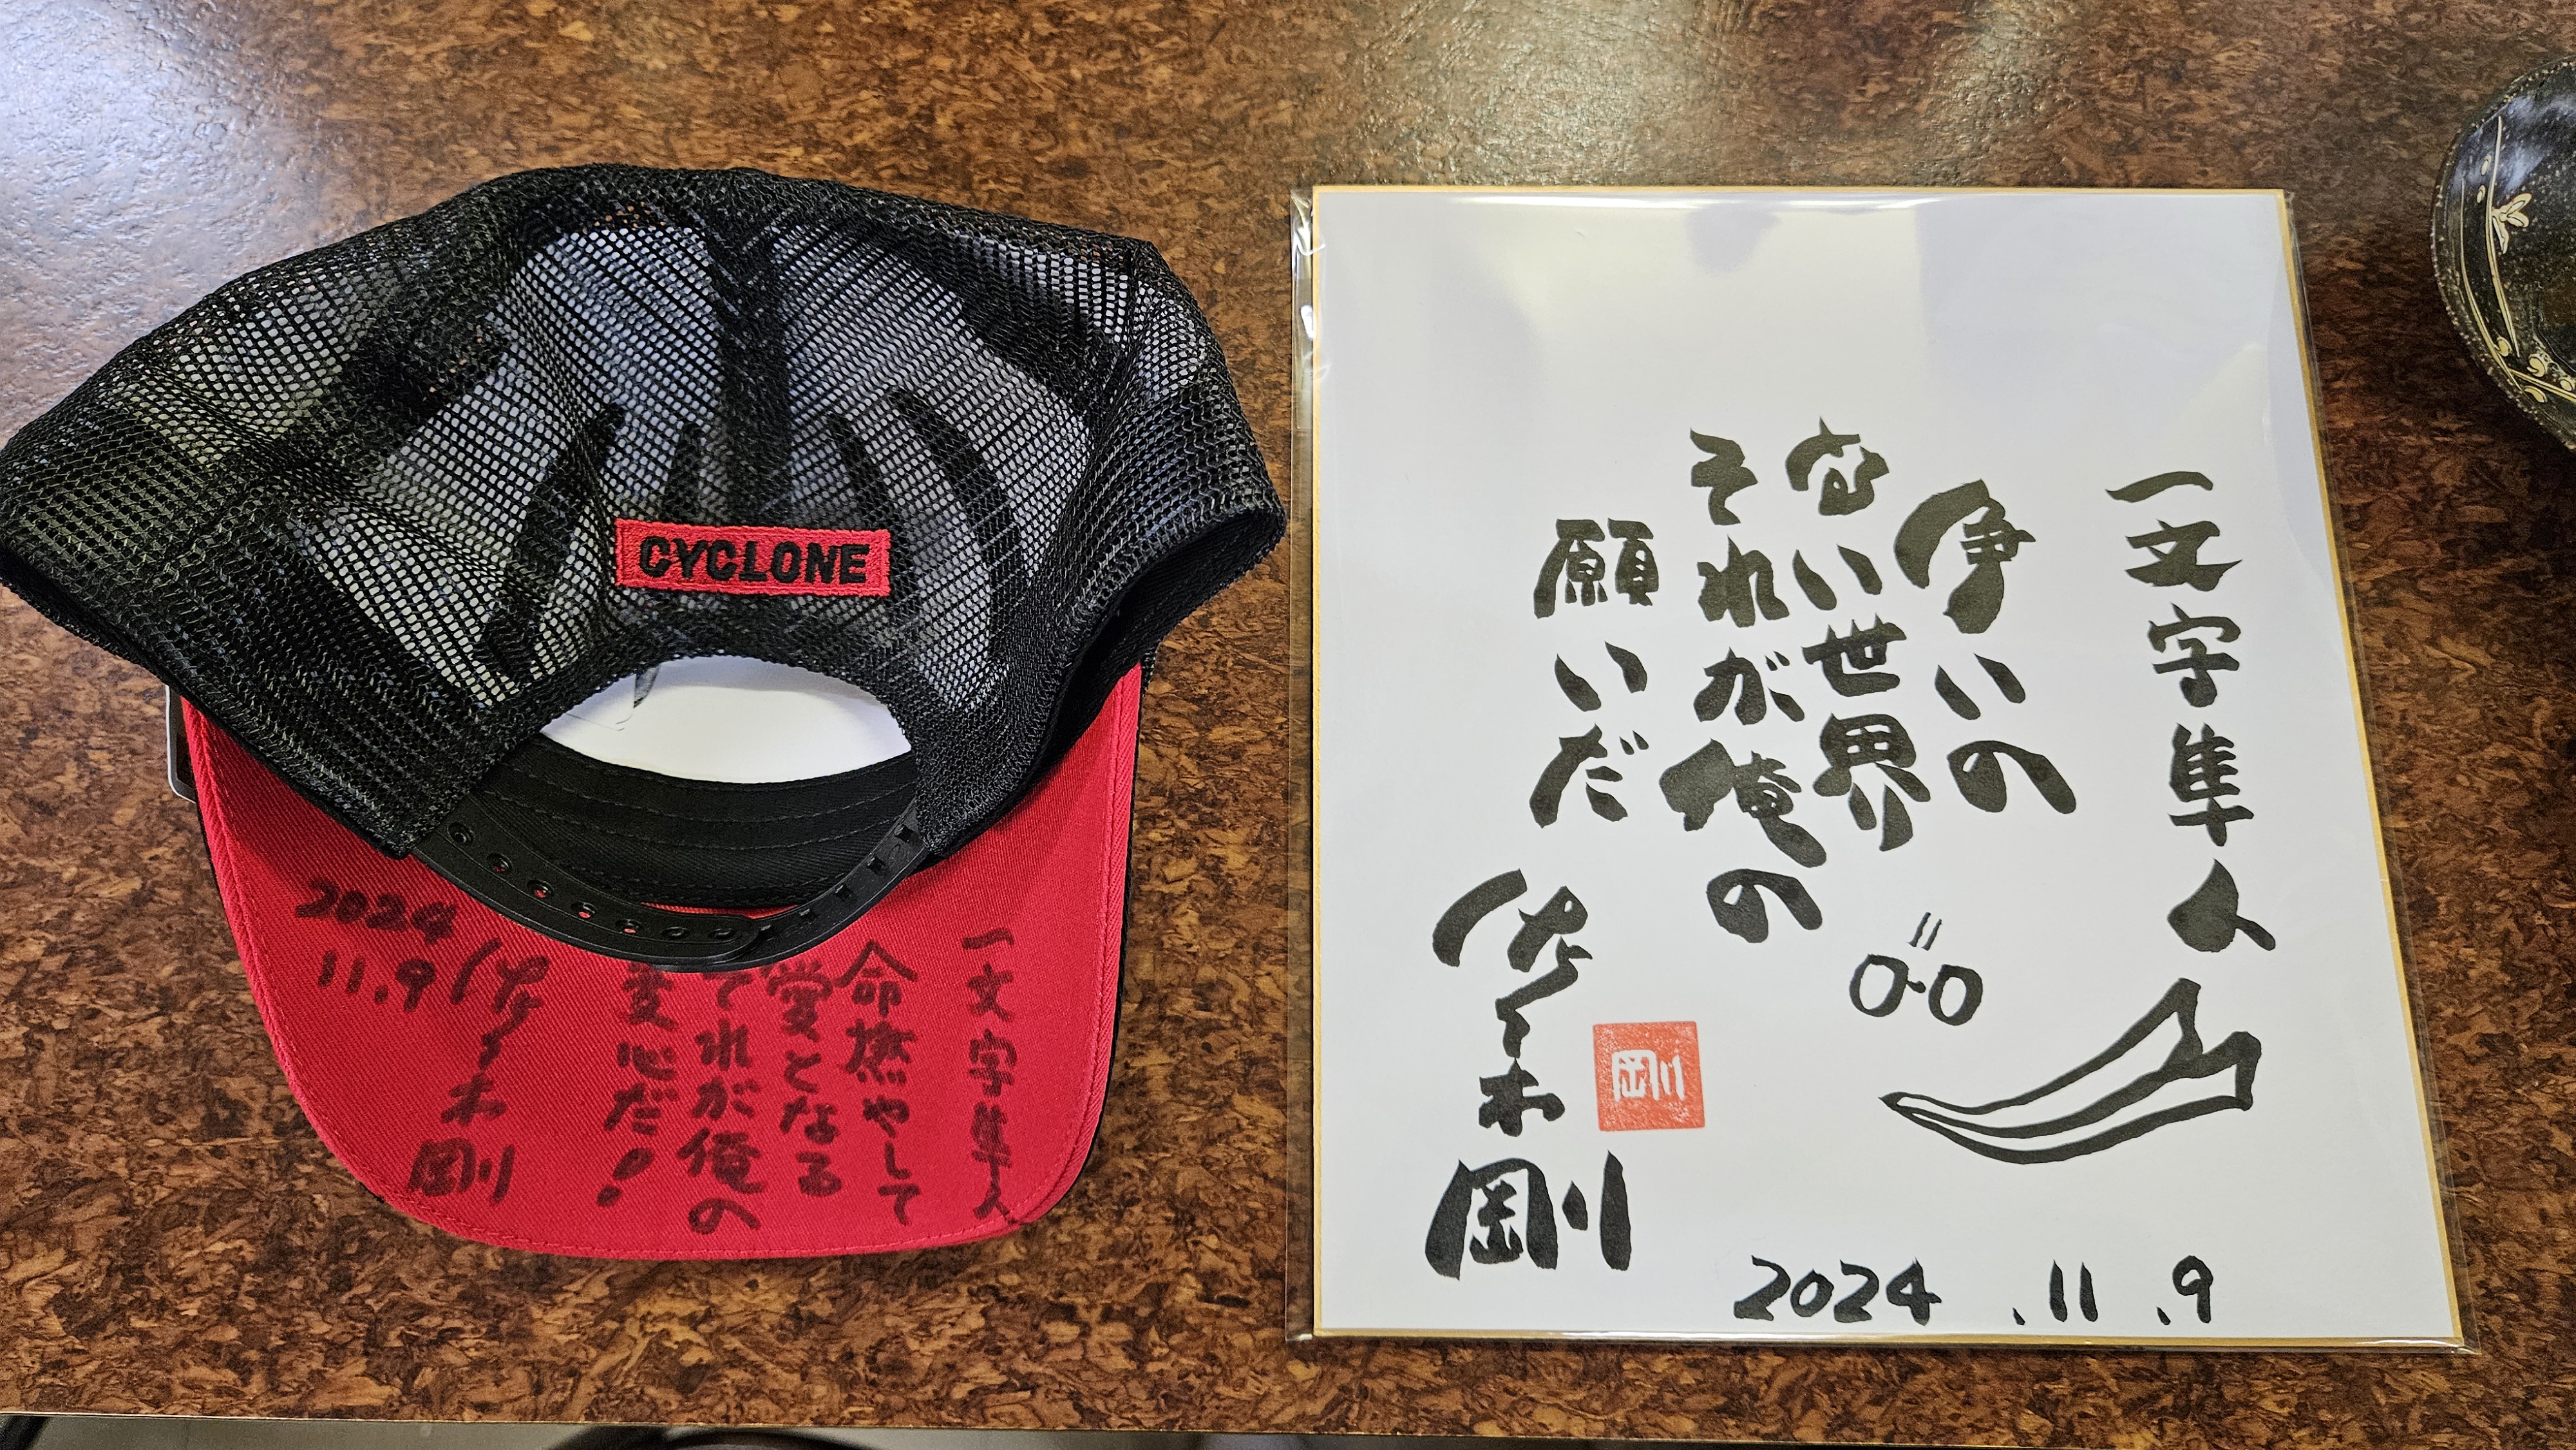 CYCLONE
一文字隼人
命燃やして
愛となる
それが俺の
変心だ!
佐々木剛
2024
11.9
一文字隼人
争いの
ない世界
それが俺の
願いだ
佐々木剛
剛
2024.11.9